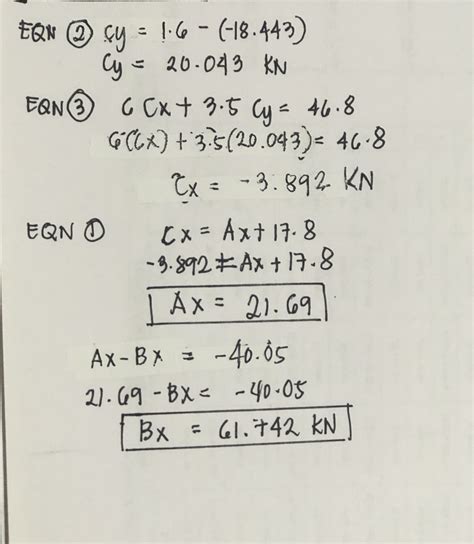 EQN ② Cy = 1.6 - (-18.443)
Cy = 20.043 KN
EQN ③ 6 Cx + 3.5 Cy = 46.8
6(Cx) + 3.5(20.043) = 46.8
Cx = -3.892 KN
EQN ① Cx = Ax + 17.8
-3.892 = Ax + 17.8
Ax = 21.69
Ax - Bx = -40.05
21.69 - Bx = -40.05
Bx = 61.742 KN